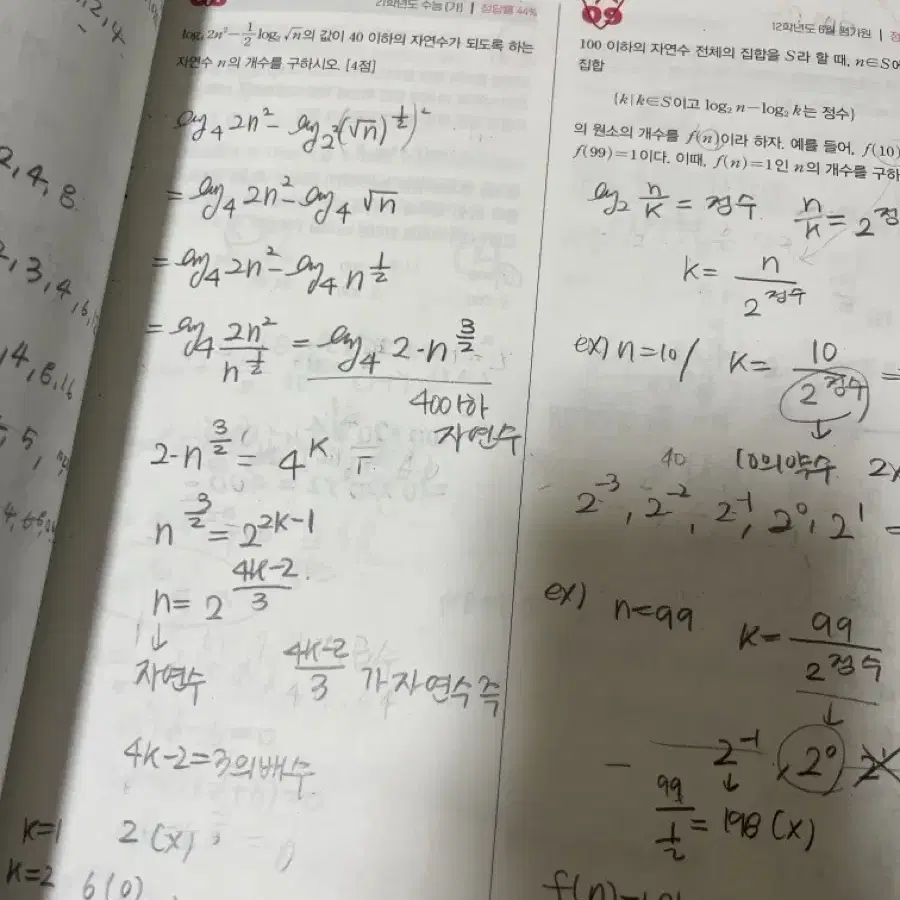 2,4
2,4,8
2,3,4,6
4,8,16
5
21학년도 수능 (가) | 정답률 44%
log₄ 2n² − 1/2 log₂ √n의 값이 40 이하의 자연수가 되도록 하는
자연수 n의 개수를 구하시오. [4점]
log₄ 2n² − log₂²((√n)^(1/2))²
= log₄ 2n² − log₄ √n
= log₄ 2n² − log₄ n^(1/2)
= log₄ 2n²/n^(1/2) = log₄ 2·n^(3/2)
40이하
자연수
2·n^(3/2) = 4^k
n^(3/2) = 2^(2k−1)
n = 2^((4k−2)/3)
↓
자연수 (4k−2)/3 가 자연수 즉
4k−2=3의배수
k=1 2 (x)
k=2 6 (0)
09
12학년도 6월 평가원 |
100 이하의 자연수 전체의 집합을 S라 할 때, n∈S에
집합
{k|k∈S이고 log₂ n−log₂ k는 정수}
의 원소의 개수를 f(n)이라 하자. 예를 들어, f(10)
f(99)=1이다. 이때, f(n)=1인 n의 개수를 구하
log₂ n/k = 정수 n/k = 2^정
k = n/2^정수
ex) n=10 / k = 10/2^정수 =
↓
40 10의약수 2
2⁻³, 2⁻², 2⁻¹, 2⁰, 2¹ =
ex) n=99 k = 99/2^정수
↓
2⁻¹, 2⁰, 2¹
↓
99/(1/2) = 198 (x)
f(n)=1